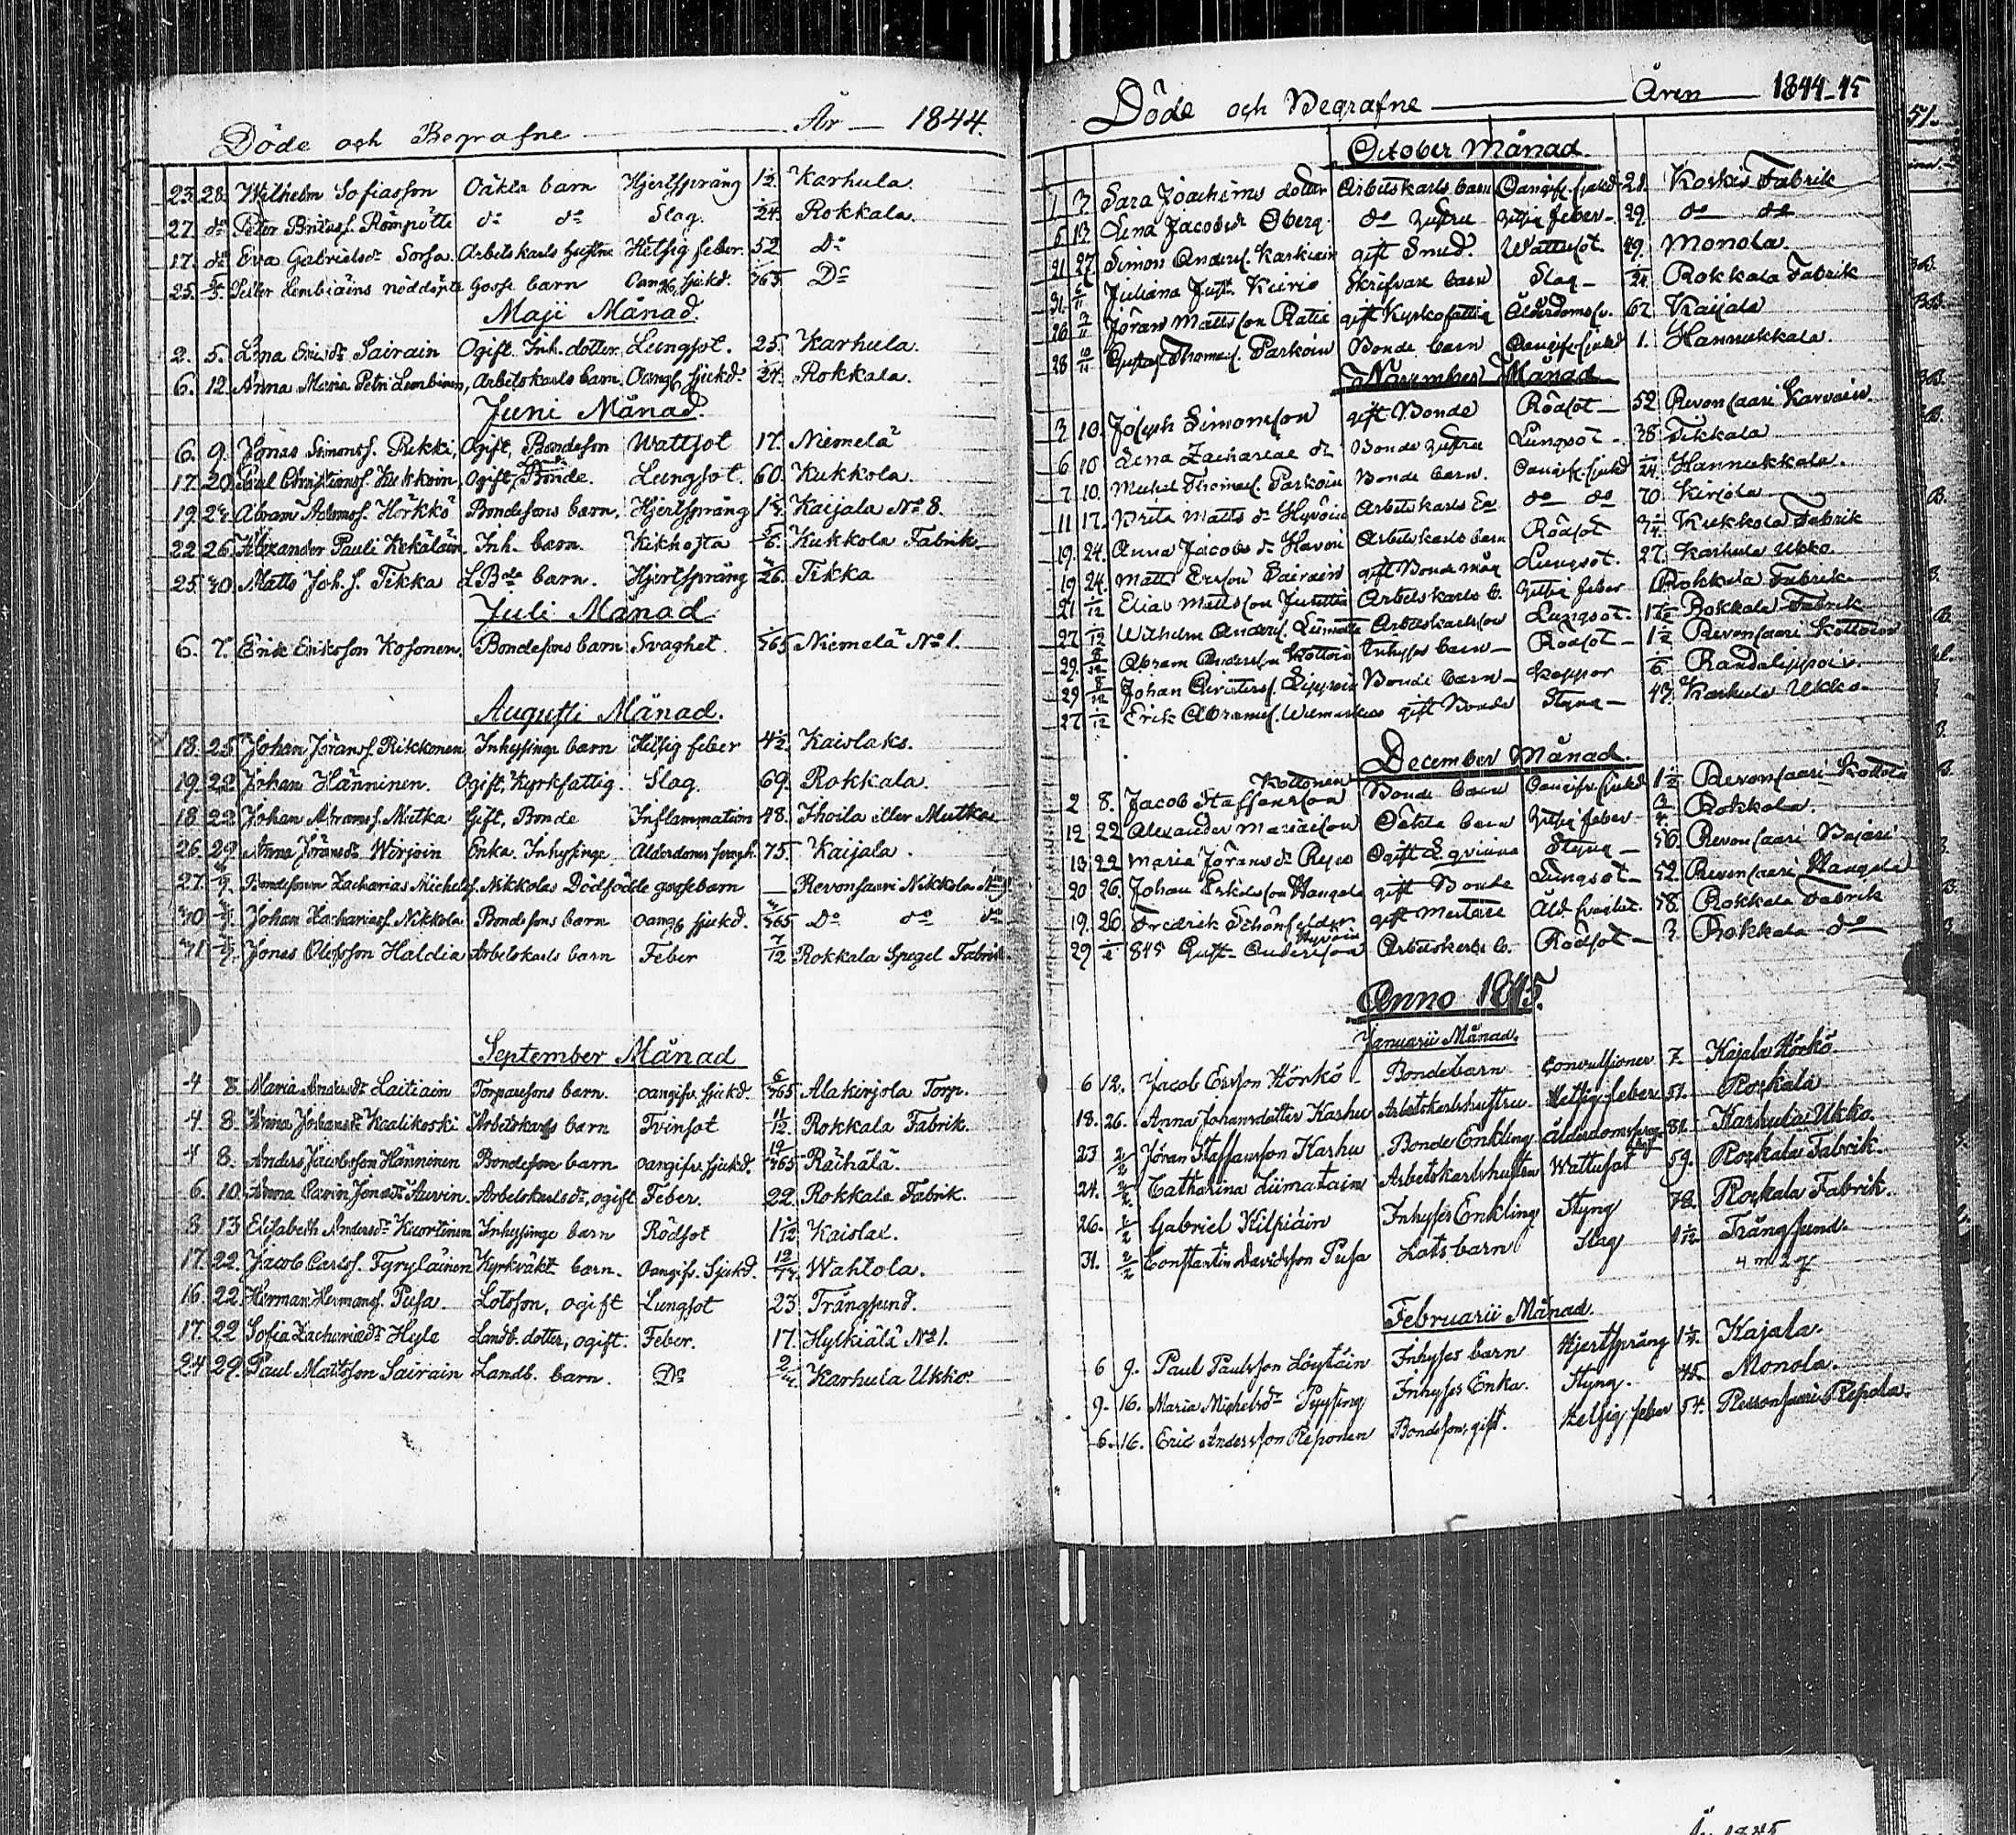 Döde och Begrafne År 1844.
23. 28. Wilhelm Sofiasson Oäkta barn Hjertsprång 1/2. Karhula.
27. do Peter Römpötti do do Slag. 1/24. Rokkala.
17. do Eva Gabrielsdr Sorsa. Arbetskarls hustru Hetsig feber. 52. Do
25. Lembiäins nöddöpte Gosse barn Oangf. sjukd. 1/365 Do
Maji Månad.
2. 5. Lena Ericsdr Sairain Ogift Inh. dotter Lungsot. 25. Karhula.
6. 12. Anna Maria Petri Lembiäinen, Arbetskarls barn Oangf. sjukd. 1/24. Rokkala.
Juni Månad.
6. 9. Jonas Simonss. Pekki, Ogift, Bondeson Wattsot 17. Niemelä
17. 20. Paul Christianss. Kukkoin, Ogift, Bonde. Lungsot. 60. Kukkola.
19. 24. Abram Adamss. Hörkkö Bondesons barn. Hjertsprång Kaijala No 8.
22. 26. Alexander Pauli Kekäläin Inh. barn. Kikhosta 5/6. Kukkola Fabrik.
25. 30. Matts Joh. s. Tikka LBde barn. Hjertsprång Tikka
Juli Månad
6. 7. Erik Eriksson Kosonen. Bondesons barn Svaghet 1/365 Niemelä No 1.
Augusti Månad.
18. 25. Johan Jöranss. Rikkonen Inhysinge barn Hetsig feber 4 1/2. Kaislaks.
19. 22. Johan Hänninen. Ogift, Kyrkfattig. Slag. 69. Rokkala.
18. 22. Johan Abramss. Mutka Gift, Bonde Inflammation 48. Ihoila eller Mutka
26. 29. Anna Jöransdr Wirjoin Enka. Inhysinge Ålderdoms svagh. 75. Kaijala.
27. Bondesonen Zacharias Michelss. Nikkolas Dödfödde gossebarn — Revonsaari Nikkola
30 Johan Zachariass. Nikkola Bondesons barn oangf. sjukd. Do do do
31 Jonas Olofsson Haldia Arbetskarls barn Feber 7/12 Rokkala Spegel Fabrik.
September Månad
4 8. Maria Andersdr Laitiain Torparesons barn. oangifv. sjukd. 6/365 Alakirjola Torp.
4. 8. Anna Johansdr Kaalikoski Arbetskarls barn Tvinsot 11/12 Rokkala Fabrik.
4 8. Anders Jacobsson Hänninen Bondeson barn oangifv. sjukd. Räihälä.
6. 10. Anna Carin Jonasdr Auvin. Arbetskarlsdr, ogift Feber. 22. Rokkala Fabrik.
3 13 Elisabeth Andersdr Kuortinen Inhysinge barn Rödsot 1 1/12 Kaislax.
17. 22. Jacob Carlss. Tyryläinen Kyrkväkt. barn. Oangifv. Sjukd. Wahtola.
16. 22 Herman Hermanss. Pusa. Lotsson, ogift Lungsot 23. Trångsund.
17. 22 Sofia Zachariædr Hyle Landb. dotter, ogift. Feber. 17. Hylkiälä No 1.
24 29. Paul Mattsson Sairain Landb. barn. Do Karhula Ukko.
Döde och Begrafne Åren 1844-45
October Månad.
1 3. Sara Joachims dotter Arbetskarls barn Oangifv. sjukd. 28. Koskis Fabrik
5 13. Lena Jacobsdr Öberg do hustru Hetsig feber 29. do do
21 27. Simon Anderss. Karkiain gift Smed. Wattusot 49. Monola.
31. Juliana Kiiriö Skrifvare barn Slag 1/24. Rokkala Fabrik
26 3/11 Jöran Mattsson Ratie gift Kyrkofattig Ålderdomssv. 67 Kaijala
28 10/11 Gustaf Thomass. Parkoin Bonde barn Oangifv. sjukd 1. Hannukkala.
November Månad
3 10. Joseph Simonsson gift Bonde Rödsot 52 Revonsaari Karvoin
6 10 Lena Zachariae dr Bonde hustru Lungsot 38 Tikkala
7 10. Michel Thomass. Parkoin Bonde barn. Oangifv. sjukd Hannukkala.
11 17. Brita Matts dr Hyvöin Arbetskarls Ea do do 70. Kirjola
19. 24. Anna Jacobs dr Havon Arbetskarls barn Rödsot Kukkola Fabrik
19 24. Matts Ersson Sairain gift Bonde måg Lungsot. 27. Karhula Ukko.
21 1/12 Elias Mattsson Arbetskarls b. Hetsig feber Rokkala Fabrik
27 1/12 Wilhelm Anderss. Liimatta Arbetskarlsson Lungsot. Rokkala Fabrik
29. 8/12 Abram Andersson Kottoin Inhyses barn Rödsot 1 1/2 Revonsaari Kottoin
29 8/12 Johan Christerss. Lippoin Bonde barn Koppor 1/6 Randalippoin.
27 1/12 Erik Abramss. gift Bonde Styng 43. Karhula Ukko.
December Månad.
Kottonen
2 8. Jacob Staffansson Bonde barn Oangifv. sjukd 1 1/2 Revonsaari Kottola
12 22 Alexander Mariaeson Oäkta barn Hetsig feber 3/4. Rokkala.
13 22 Maria Jöransdr Repo Ogift Qvinna Styng 56. Revonsaari
20 26. Johan Erksson Hangela gift Bonde Lungsot 52. Revonsaari Hangela
19. 26. Fredrik Schönfelder gift Mestare Åld. svaghet. 58. Rokkala Fabrik
Hyvöin
29 845 Gust. Andersson Arbetskarls b. Rödsot 3. Rokkala do
Anno 1845.
Januarii Månad.
6 12. Jacob Ersson Hörkö Bondebarn Convulsioner 7. Kajala Hörkö.
18. 26. Anna Johansdotter Karhu Arbetskarlshustru Hetsig feber 51. Rokkala
23 2/2 Jöran Staffansson Karhu Bonde Enkling Ålderdomssvag- 81. Karhula Ukko.
24. 2/2 Catharina Liimatain Arbetskarlshustru Wattusot 59. Rokkala Fabrik.
26. 2/2 Gabriel Kilpiäin Inhyses Enkling Styng 78. Rokkala Fabrik.
31. 2/2 Constantin Davidsson Pusa Lots barn Slag Trångsund.
Februarii Månad.
6 9. Paul Paulsson Löytäin Inhyses barn Hjertsprång Kajala.
9. 16. Maria Michelsdr Pyysing Inhyses Enka. Styng. 75. Monola.
6. 16. Eric Andersson Reponen Bondeson, gift. Hetsig feber 54. Revonsaari Repola.
51.